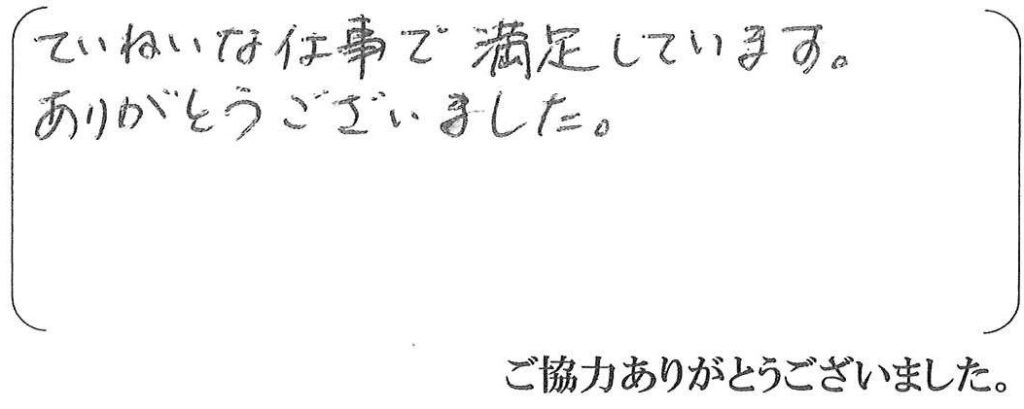 ていねいな仕事で満足しています。
ありがとうございました。
ご協力ありがとうございました。